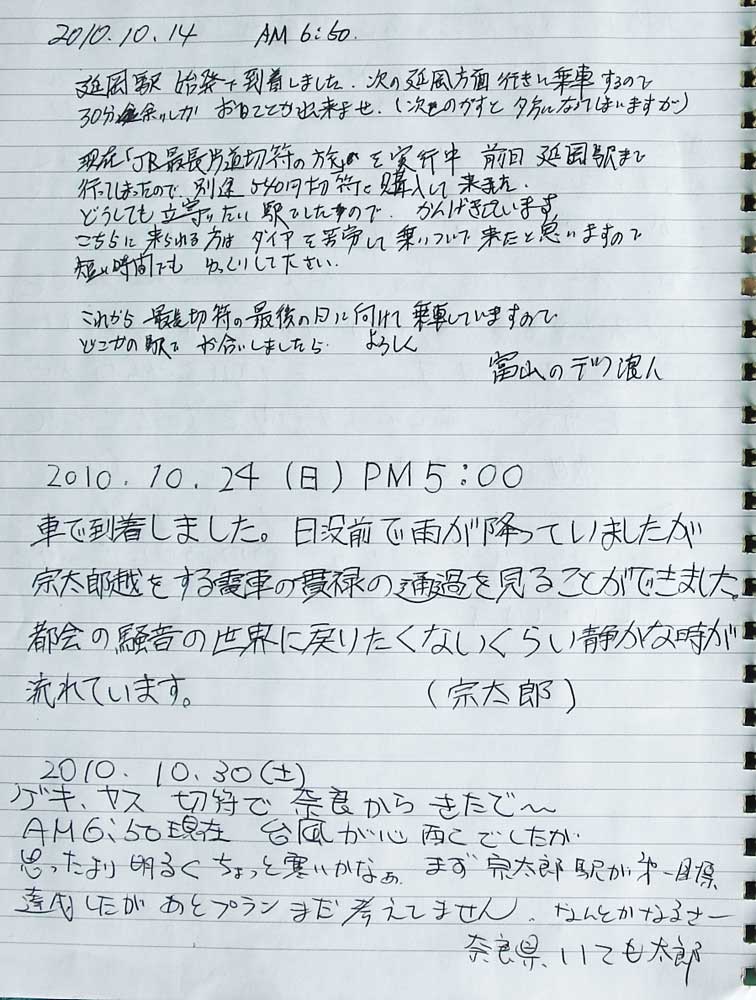 2010.10.14 AM 6:50.
延岡駅 始発で到着しました. 次の延岡方面行きに乗車するので
30分余りしか お目にとか出来ませ. (次をのがすと 夕方になってしまいますが)
現在「JR最長片道切符の旅」を実行中 前日 延岡駅まで
行ってしまったので. 別途 540円切符を購入して 来ました.
どうしても 立寄りたい駅でしたので. かんげきしています
こちらに来られる方は ダイヤを苦労して 乗りついで来たと思いますので
短い時間でも ゆっくりして下さい.
これから 最長切符の最後の日に向けて 乗車していますので
どこかの駅で お会いしましたら よろしく
富山のデブ浪人
2010.10.24 (日) PM 5:00
車で到着しました。日没前で雨が降っていましたが
宗太郎越をする電車の貫禄の通過を見ることができました。
都会の騒音の世界に戻りたくないくらい静かな時が
流れています。 (宗太郎)
2010.10.30(土)
ゲキ、ヤス 切符で 奈良から きたで〜
AM6:50現在 台風が心配でしたが
思ったより 明るく ちょっと寒いかなぁ まず 宗太郎駅が第一目標
達成したが あとプラン まだ 考えてません. なんとかなるさー
奈良県、いても太郎